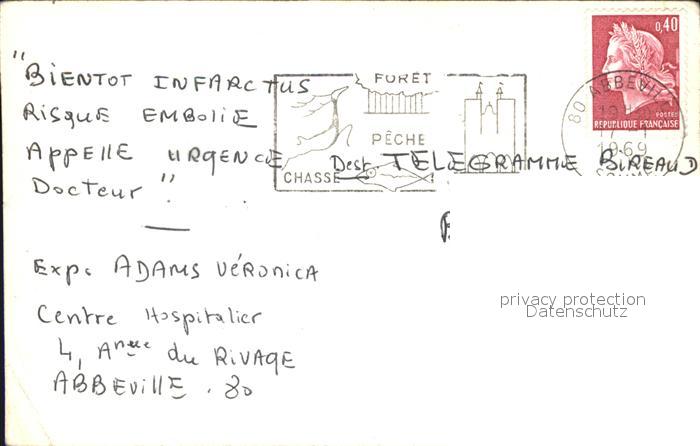 "BIENTOT INFARCTUS
RISQUE EMBOLIE
APPELLE URGENCE
DOCTEUR"
Exp. ADAMS VÉRONICA
Centre Hospitalier
4, Anne du RIVAGE
ABBEVILLE . 80
FORÊT
PÊCHE
CHASSE
Dest. TELEGRAMME BUREAUD
0,40
POSTES
REPUBLIQUE FRANÇAISE
80 ABBEVILLE
1969
privacy protection
Datenschutz